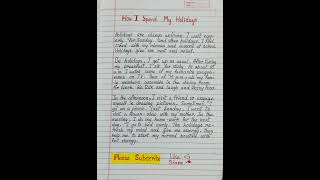 How I Spend My Holidays
Holidays are always welcome. I wait eagerly
for Sunday and other holidays. I feel
tired with my lessons and hours of school.
Holidays give me rest and relief.
On holidays, I get up as usual. After taking
my breakfast, I sit for study. At about 11
a.m I watch some of my favourite programmes
on TV. Then at 1.
family members assemble in the dining room
for lunch. We talk and laugh and enjoy food.
In the afternoon, I visit a friend or engage
myself in drawing pictures. Sometimes, I
go on a picnic. Last Sunday, I went to
visit a flower show with my mother. In the
evening, I do my home-work for the next
day. I go to bed early. The holidays re-
fresh my mind and give me energy. They
help me to start my normal routine with
full energy.
Please Subscribe
Like
Share